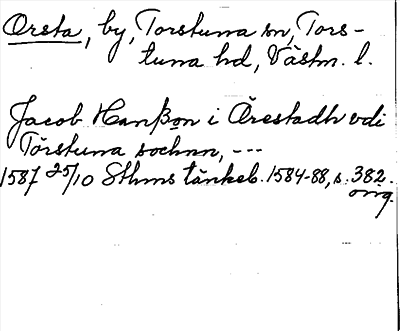 Orsta, by, Torstuna sn, Tors-
tuna hd, Västm. l.
Jacob Hanßon i Årestadh vdi
Törstuna sochnn, ---
1587 25/10 Sthms tänkeb. 1584-88, s. 382.
orig.